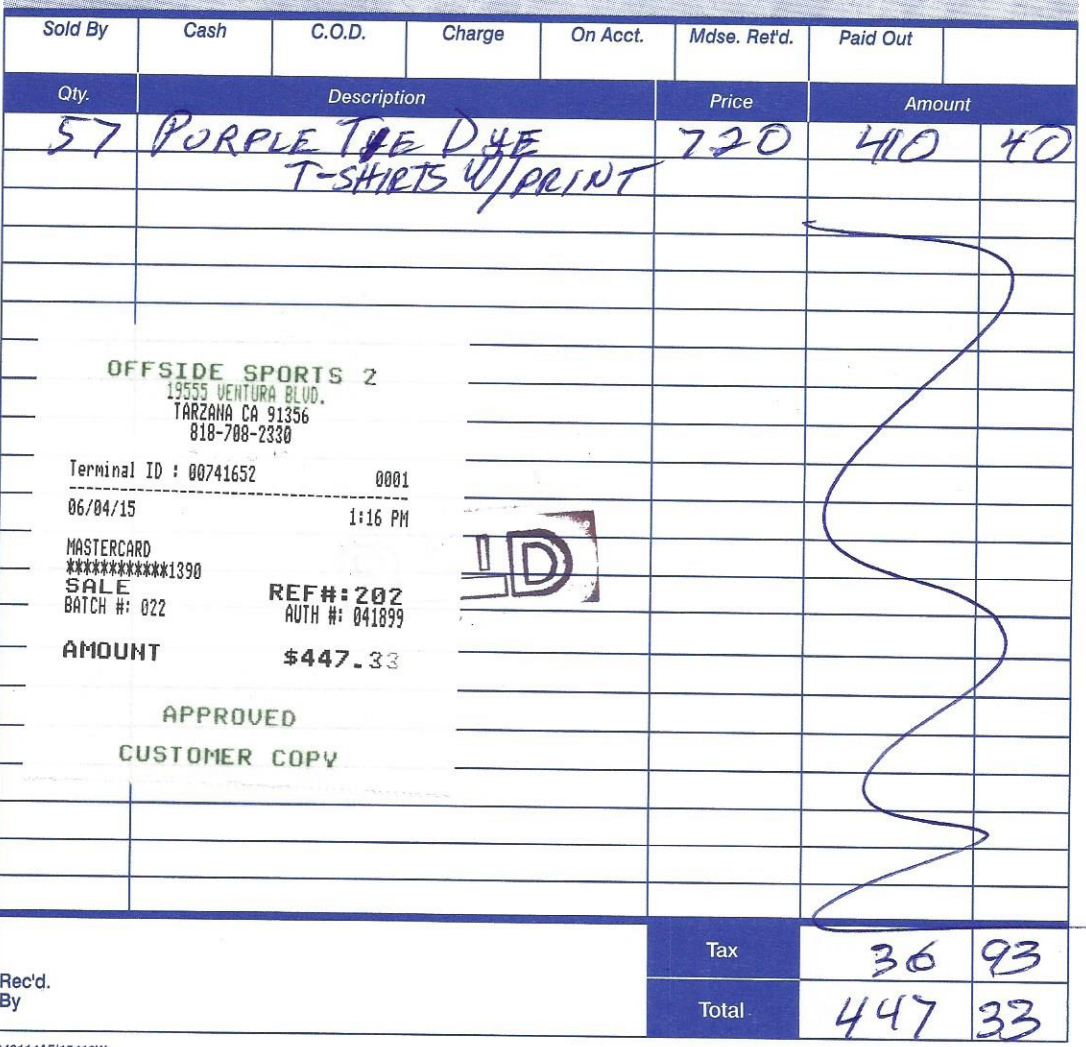 Sold By Cash C.O.D. Charge On Acct. Mdse. Ret'd. Paid Out
Qty. Description Price Amount
57 PURPLE TYE DYE 720 410 40
T-SHIRTS W/PRINT
OFFSIDE SPORTS 2
19555 VENTURA BLVD.
TARZANA CA 91356
818-708-2330
Terminal ID : 00741652 0001
06/04/15 1:16 PM
MASTERCARD
************1390
SALE REF#:202
BATCH #: 022 AUTH #: 041899
AMOUNT $447.33
APPROVED
CUSTOMER COPY
Tax 36 93
Rec'd.
By
Total 447 33